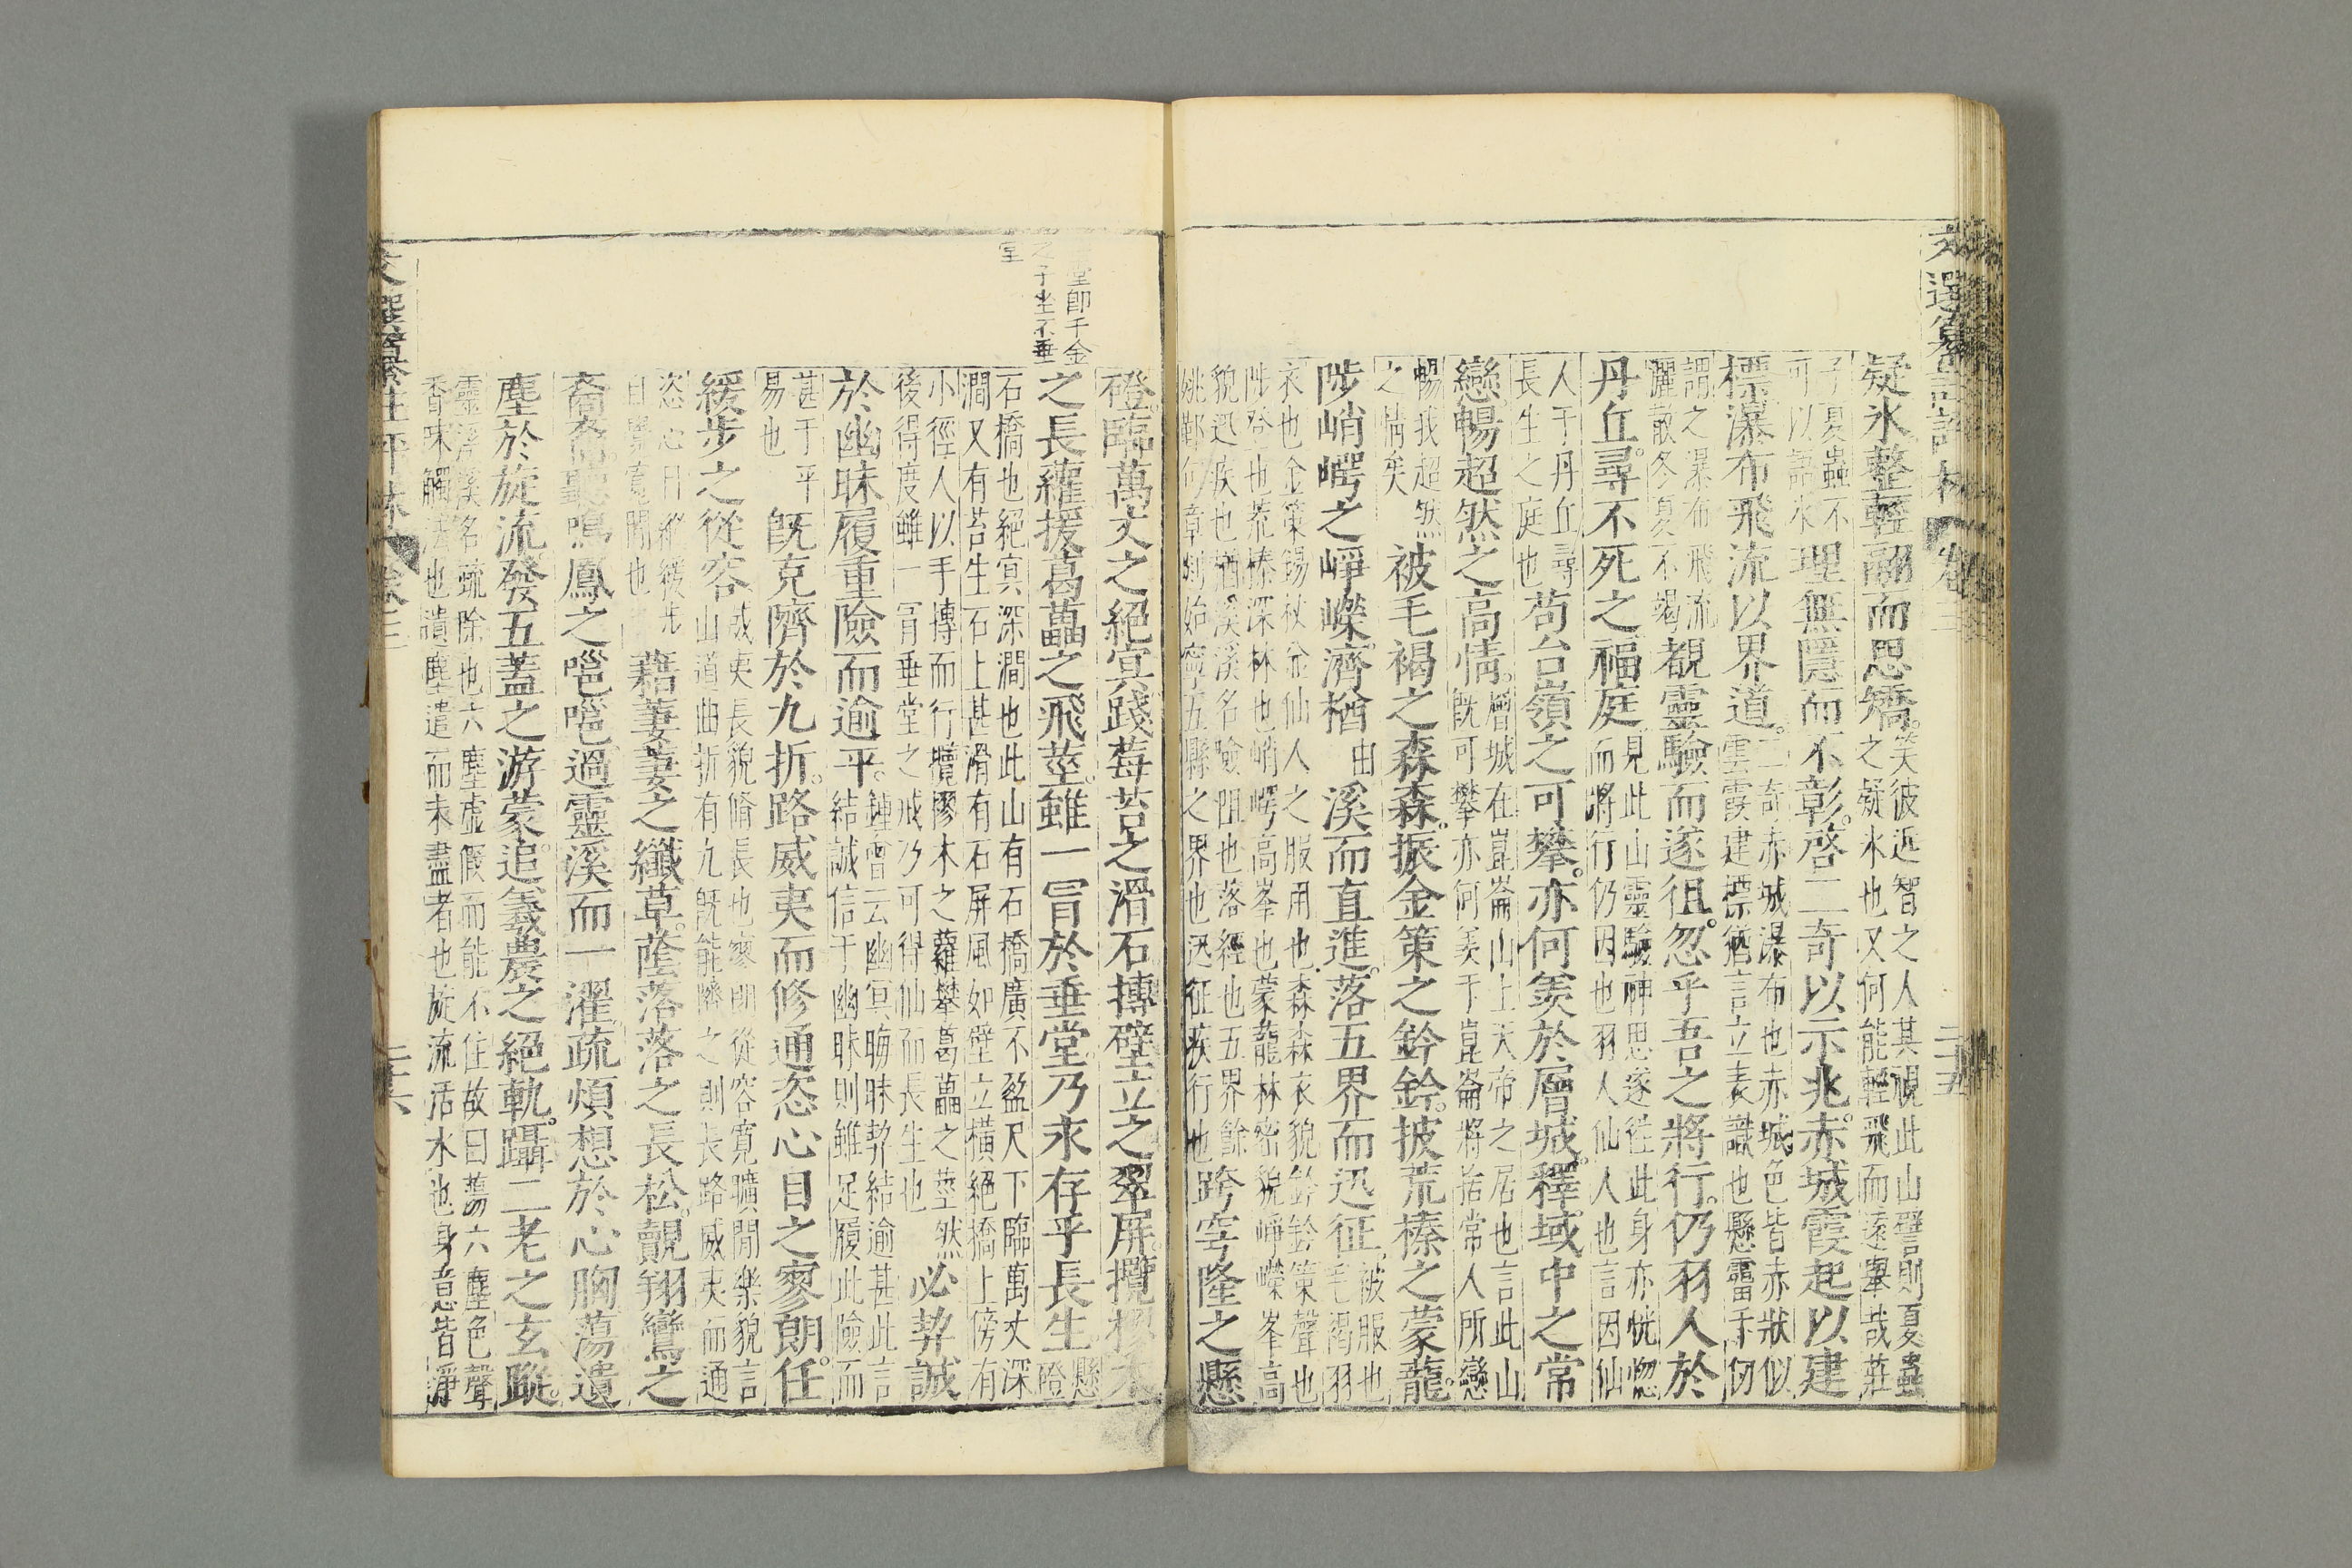 疑氷整輕翮而思矯。笑彼近智之人其視此山譬則夏蟲
之疑氷也又何能輕飛而遠擧哉莊
子夏蟲不
可以語氷
理無隱而不彰。啓二奇以示兆。赤城霞起以建
標瀑布飛流以界道。二奇赤城瀑布也赤城色皆赤狀似
雲霞建標猶言立表識也懸霤千仞
謂之瀑布飛流
灑散冬夏不竭
覩靈驗而遂徂。忽乎吾之將行。仍羽人於
丹丘。尋不死之福庭見此山靈驗神思遂徃此身亦恍惚
而將行仍因也羽人仙人也言因仙
人于丹丘尋
長生之庭也
苟台嶺之可攀。亦何羨於層城。釋域中之常
戀。暢超然之高情。層城在崑崙山上天帝之居也言此山
既可攀亦何羨于崑崙將捨常人所戀
暢我超然
之情矣
被毛褐之森森。振金策之鈴鈴。披荒榛之蒙蘢。
陟峭崿之崢嶸。濟楢由溪而直進。落五界而迅征。被服也
毛褐羽
衣也金策錫杖並仙人之服用也森森衣貌鈴鈴策聲也
陟登也荒榛深林也峭崿高峯也蒙蘢林密貌崢嶸峯高
貌迅疾也楢溪溪名險阻也落經也五界餘
姚鄞句章剡始寧五縣之界也迅征疾行也
跨穹隆之懸
磴。臨萬丈之絕冥踐莓苔之滑石搏壁立之翠屏。攬樛木
之長蘿援葛藟之飛莖。雖一冒於垂堂。乃永存乎長生。懸
磴
石橋也絕冥深澗也此山有石橋廣不盈尺下臨萬丈深
澗又有苔生石上甚滑有石屏風如壁立橫絕橋上傍有
小徑人以手搏而行攬樛木之蘿攀葛藟之莖然
後得度雖一冒垂堂之戒乃可得仙而長生也
必契誠
於幽昧履重險而逾平。鍾會云幽冥晦昧契結逾甚此言
結誠信于幽昧則雖足履此險而
甚于平
易也
既克隮於九折。路威夷而修通恣心目之寥朗。任
緩步之從容威夷長貌脩長也寥朗從容寬曠閒樂貌言
山道曲折有九既能隮之則長路威夷而通
恣心目縱緩步
自覺寬閒也
藉萋萋之纖草。蔭落落之長松。覿翔鸞之
裔裔聽鳴鳳之嗈嗈過靈溪而一濯疏煩想於心胸蕩遺
塵於旋流發五蓋之游蒙。追羲農之絕軌。躡二老之玄蹤。
靈溪溪名疏除也六塵虛假而能不住故曰蕩六塵色聲
香味觸法也遺塵遣而未盡者也旋流活水也身意皆淨
堂即千金
之子坐不垂
堂